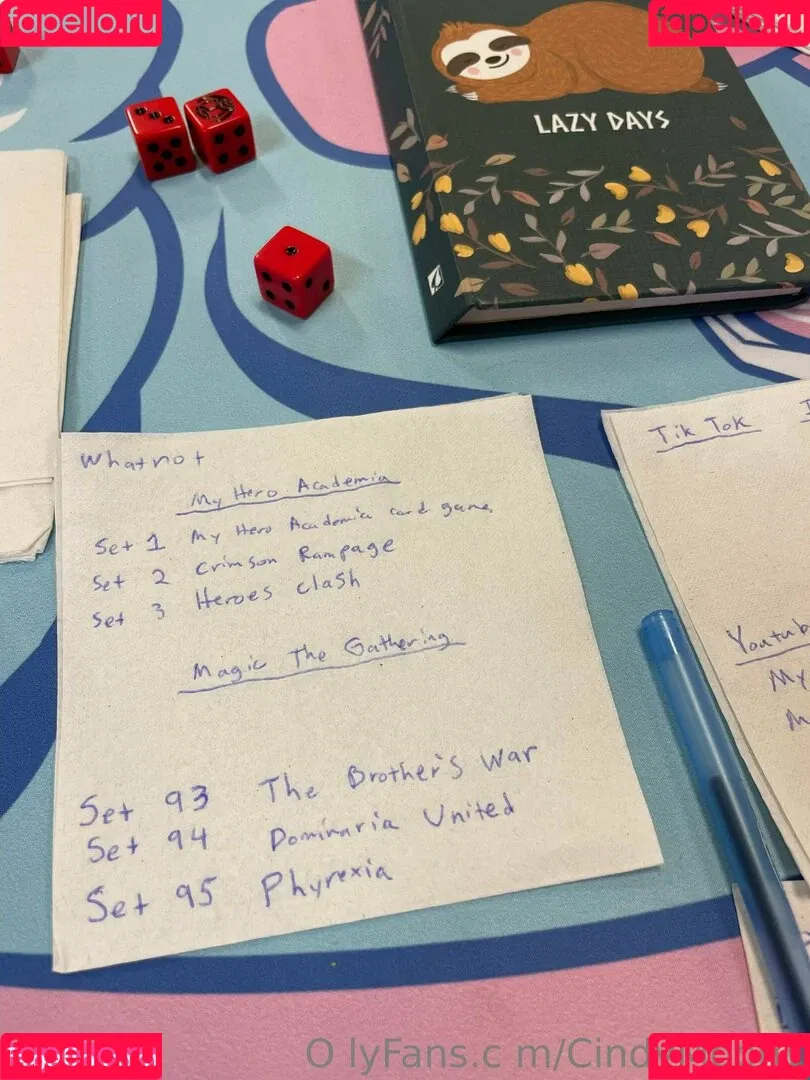 fapello.ru
fapello.ru
LAZY DAYS
Whatnot
My Hero Academia
Set 1 My Hero Academia card game
Set 2 Crimson Rampage
Set 3 Heroes clash
Magic The Gathering
Set 93 The Brother's War
Set 94 Dominaria United
Set 95 Phyrexia
Tik Tok
Youtub
My
M
fapello.ru
O lyFans.c m/Cind
fapello.ru